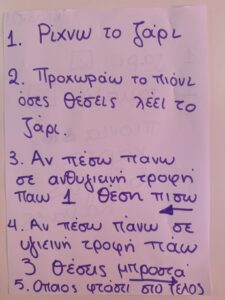 1. Ρίχνω το ζάρι
2. Προχωράω το πιόνι
όσες θέσεις λέει το
ζάρι.
3. Αν πέσω πάνω
σε ανθυγιεινή τροφή
πάω 1 θέση πίσω
4. Αν πέσω πάνω σε
υγιεινή τροφή πάω
3 θέσεις μπροστά
5. Όποιος φτάσει στο τέλος